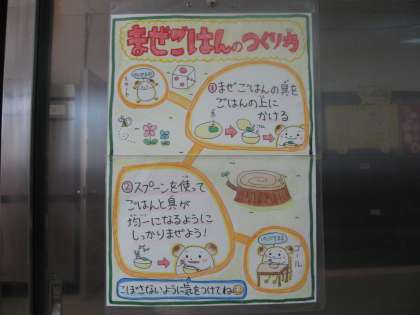 まぜごはんのつくり方
①まぜごはんの具を
ごはんの上に
かける
②スプーンを使って
ごはんと具が
均一になるように
しっかりまぜよう！
ゴール
こぼさないように気をつけてね